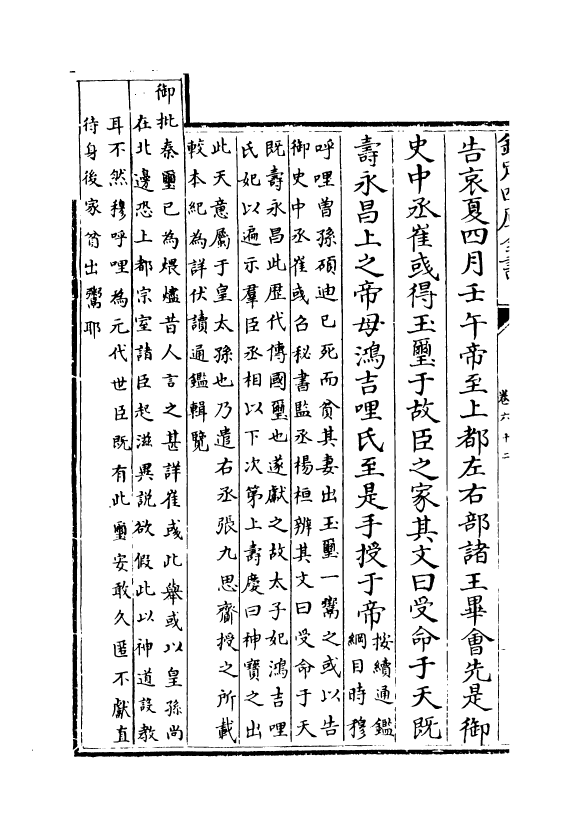 欽定四庫全書
卷六十二
告哀夏四月壬午帝至上都左右部諸王畢會先是御
史中丞崔彧得玉璽于故臣之家其文曰受命于天既
壽永昌上之帝母鴻吉哩氏至是手授于帝
按續通鑑
綱目時穆
呼哩曽孫碩迪已死而貧其妻出玉璽一鬻之或以告
御史中丞崔彧召秘書監丞楊桓辨其文曰受命于天
既壽永昌此歴代傳國璽也遂獻之故太子妃鴻吉哩
氏妃以遍示羣臣丞相以下次第上壽慶曰神寶之出
此天意屬于皇太孫也乃遣右丞張九思齎授之所載
較本紀為詳伏讀通鑑輯覽
御批秦璽已為煨燼昔人言之甚詳崔彧此舉或以皇孫尚
在北邊恐上都宗室諸臣起滋異說欲假此以神道設教
耳不然穆呼哩為元代世臣既有此璽安敢久匿不獻直
待身後家貧出鬻耶